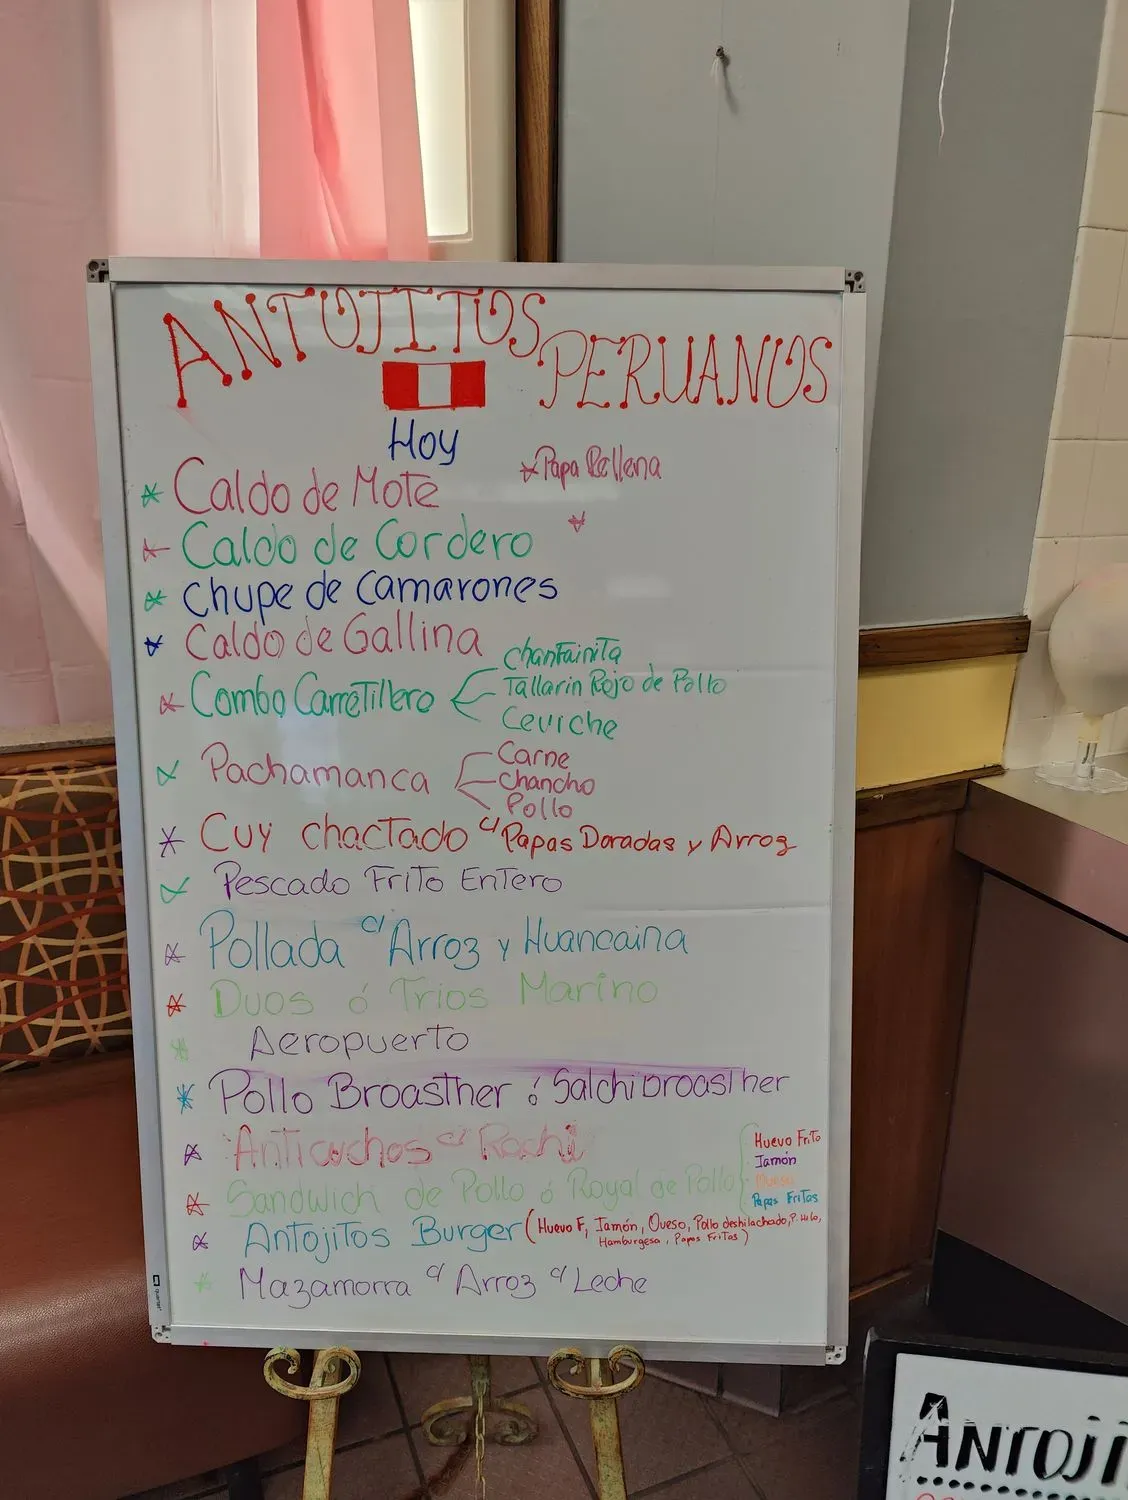 ANTOJITOS PERUANOS
Hoy
Papa Rellena
Caldo de Mote
Caldo de Cordero
Chupe de Camarones
Caldo de Gallina
Combo Carretillero
Chanfainita
Tallarin Rojo de Pollo
Ceviche
Pachamanca
Carne
Chancho
Pollo
Cuy chactado c/ Papas Doradas y Arroz
Pescado Frito Entero
Pollada c/ Arroz y Huancaina
Duos ó Trios Marino
Aeropuerto
Pollo Broasther ó Salchibroasther
Anticuchos c/ Rachi
Sandwich de Pollo ó Royal de Pollo
Huevo Frito
Jamón
Queso
Papas Fritas
Antojitos Burger (Huevo F, Jamón, Queso, Pollo deshilachado, P. Hilo,
Hamburgesa, Papas Fritas)
Mazamorra c/ Arroz c/ Leche
Quartet
ANTOJI